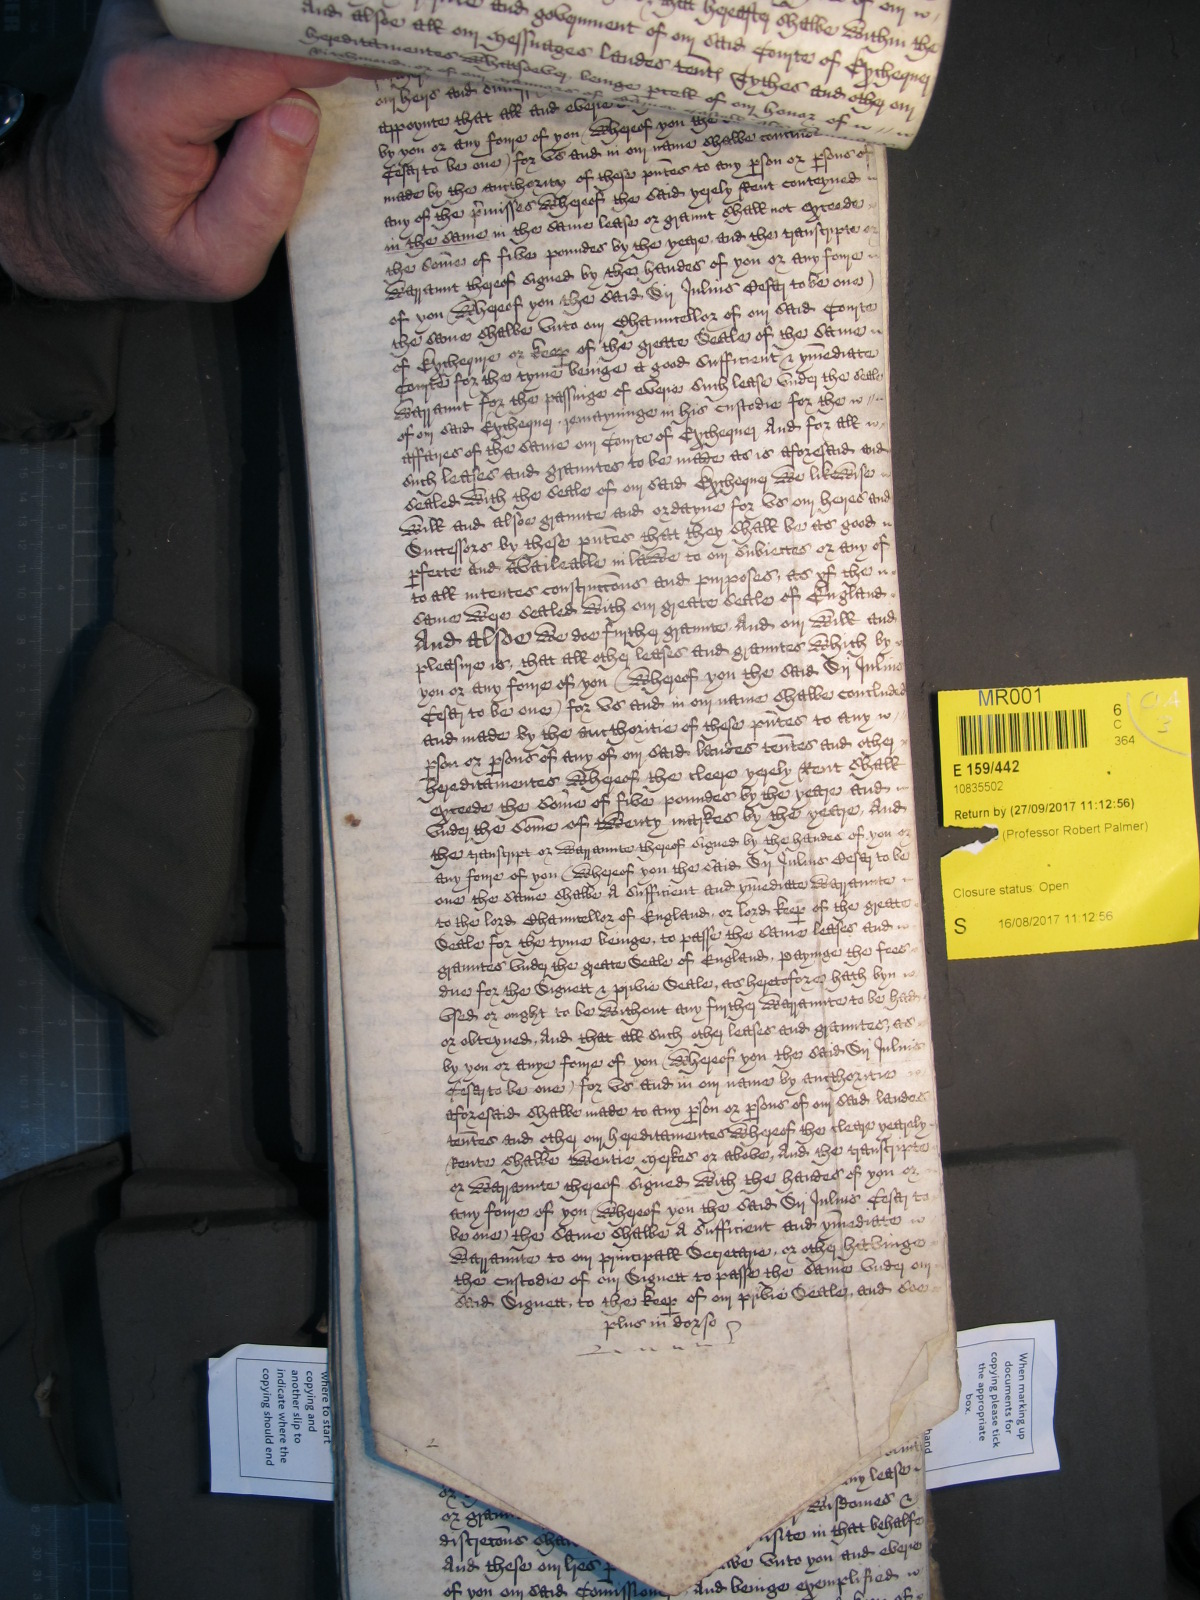 that hereafter shalbe within the
and goverment of our said Courte of Exchequer
And alsoe all our messuages landes tentes Tythes and other our
hereditamentes whatsoever, beinge pcell of our honor of
our heirs and
appoynte that all and everie
by you or any fowre of you (whereof you the
Cesar to be one) for us and in our name shalbe
made by the authority of these pntes to any pson or psons of
any of the pmisses whereof the said yerely Rent conteyned
in the same in the same lease or graunt shall not exceede
the some of five poundes by the yeare, and the transcripte or
Warrannt thereof signed by the handes of you or any fowre
of you (whereof you the said Sir Julius Cesar to be one)
the same shalbe unto our Chauncellor of our said Courte
of Exchequer or keep of the greate Seale of the same
Courte for the tyme beinge a good sufficient & ymediate
Warrannt for the passinge of everie such lease under the seale
of our said Exchequer remayninge in his custodie for the
affaires of the same our Courte of Exchequer And for all
such leases and grauntes to be made as is aforesaid and
sealed with the seale of our said Exchequer We likewise
Will and alsoe graunte and ordayne for us our heires and
Successors by these pntes that they shall be as good
pfecte and availeable in lawe to our subiectes or any of
to all intentes construccons and purposes, as yf the
same were sealed with our greate seale of England
And alsoe We doe further graunte And our Will and
pleasure is, that all other leases and grauntes which by
you or any fowre of you (whereof you the said Sir Julius
Cesar to be one) for us and in our name shalbe concluded
and made by the authoritie of these pntes to any
pson or psons of any of our said landes tentes and other
hereditamentes whereof the cleere yerely Rent shall
exceede the some of five poundes by the yeare and
under the some of twenty markes by the yeare, And
the transcript or warrannte thereof signed by the handes of you or
any fowre of you (whereof you the said Sir Julius Cesar to be
one the same shalbe a sufficient and ymediate warrannte
to the lord Chauncellor of England, or lord keep of the greate
Seale for the tyme beinge, to passe the same leases and
grauntes under the greate Seale of England, payinge the fees
due for the Signett & privie Seale, as heretofore hath byn
used or ought to be without any further warrannte to be had
or obteyned, And that all such other leases and grauntes, as
by you or anye fowre of you (whereof you the said Sir Julius
Cesar to be one) for us and in our name by authoritie
aforesaid shalbe made to any pson or psons of our said landes
tentes and other our hereditamentes whereof the cleere yearely
Rente shalbe twentie merkes or above, And the transcripte
or warrannte thereof signed with the handes of you or
any fowre of you (whereof you the said Sir Julius Cesar to
be one) the same shalbe a sufficient and ymediate
Warrannte to our principall Secretarie, or other havinge
the custodie of our Signett to passe the same under our
said Signett, to the keep of our privie Seale, and soe
plus in dorso
any lease
or
or graunt wisdomes &
discrecons shall in that behalfe
And these our lres unto you and everie
of you our said Comissioner And beinge exemplified
MR001
6
C
364
E 159/442
10835502
Return by (27/09/2017 11:12:56)
(Professor Robert Palmer)
Closure status: Open
S 16/08/2017 11:12:56
where to start
copying and
another slip to
indicate where the
copying should end
When marking up
documents for
copying please tick
the appropriate
box.
hand